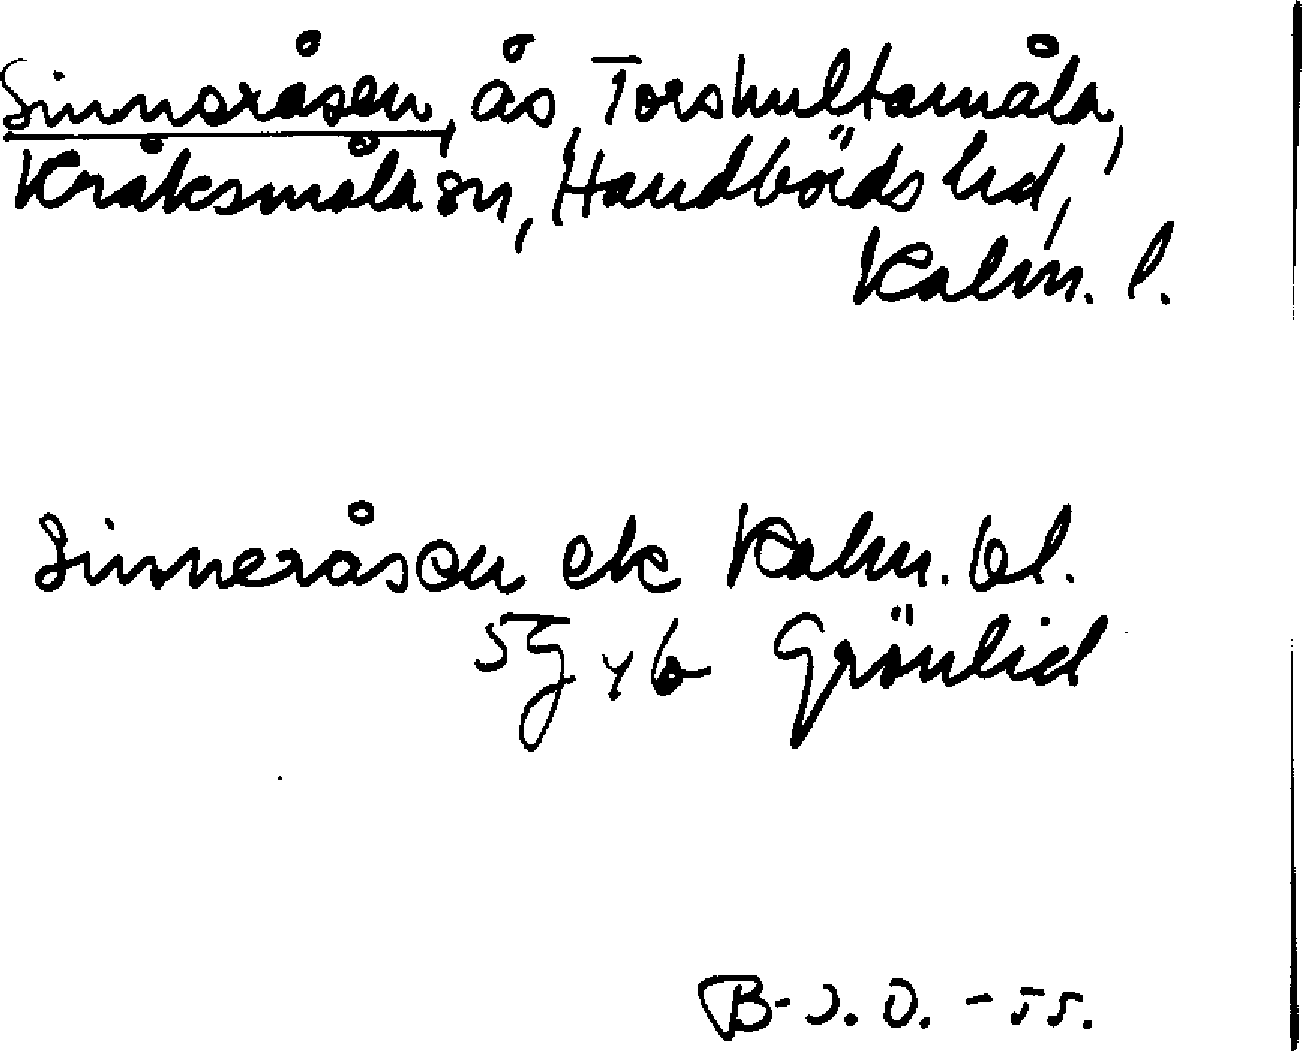 Sinneråsen, ås, Torshultamåla,
Kråksmåla sn, Handbörds hd,
Kalm. l.
Sinneråsen ek Kalm. bl.
5G y b Grönlid
B-J. O. - 55.